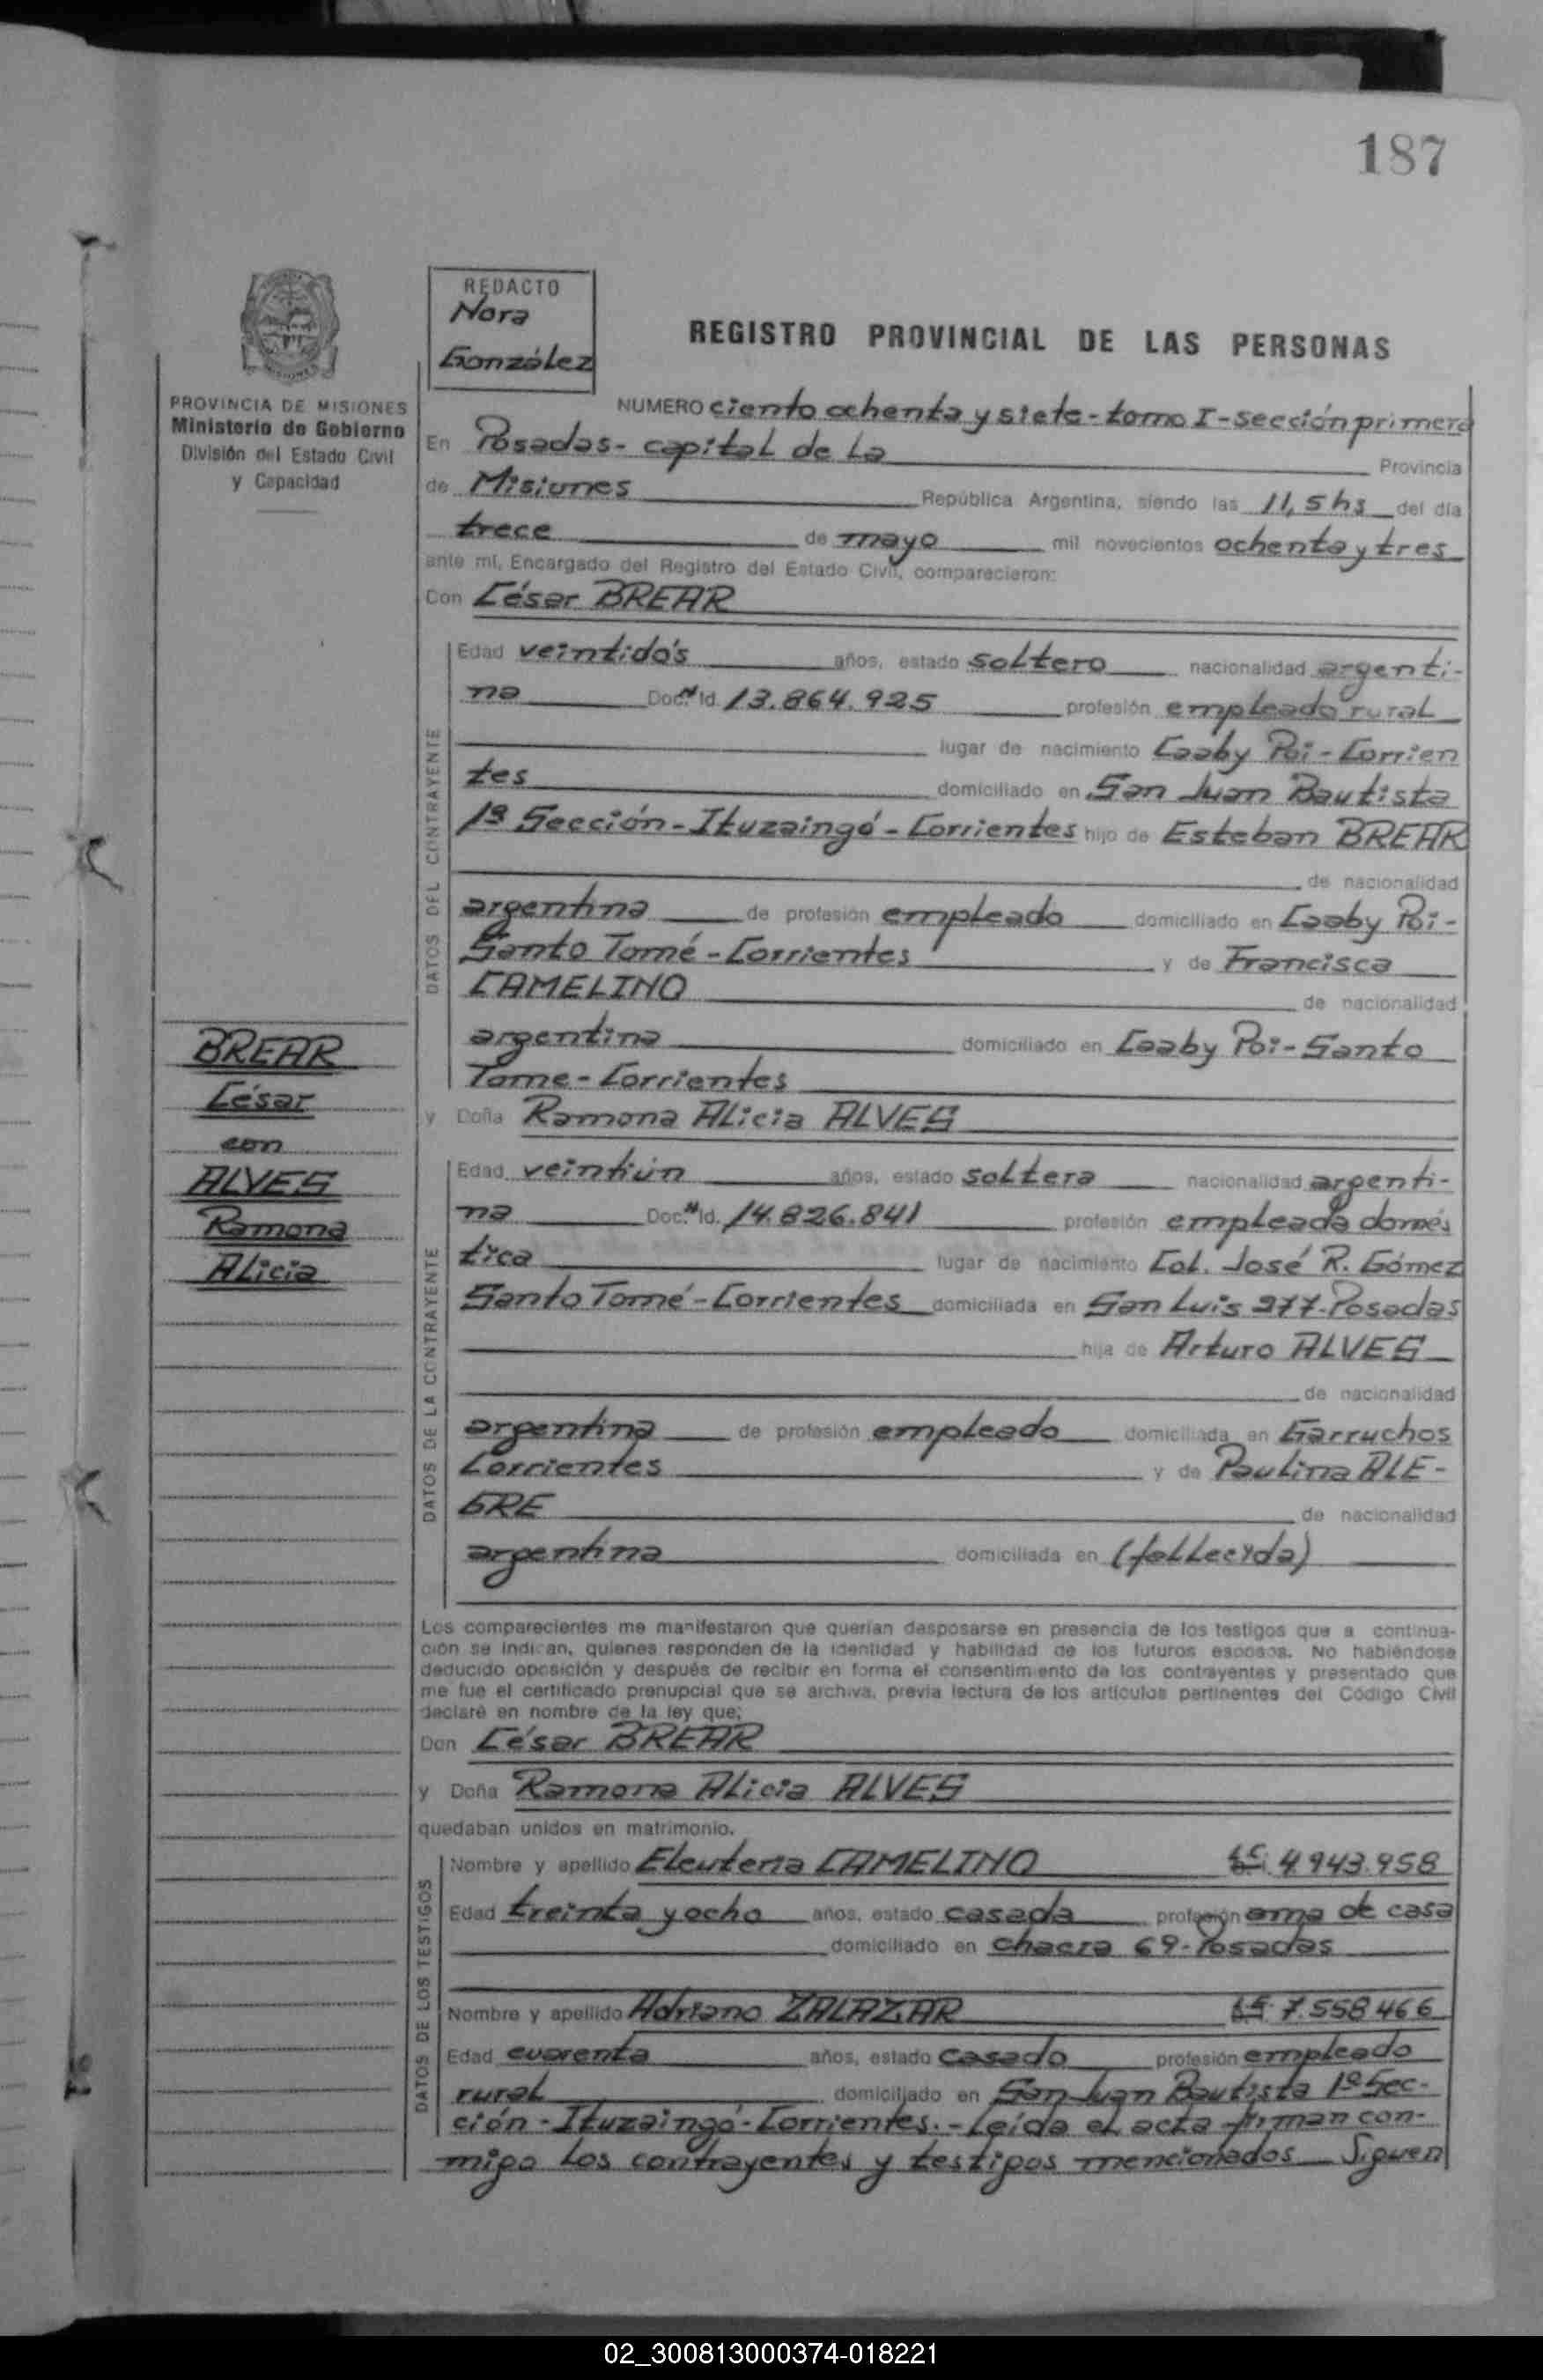 187
REDACTO
Nora
González
REGISTRO PROVINCIAL DE LAS PERSONAS
PROVINCIA DE MISIONES
Ministerio de Gobierno
División del Estado Civil
y Capacidad
NUMERO ciento ochenta y siete - tomo I - sección primera
En Posadas - capital de La Provincia
de Misiones República Argentina, siendo las 11,5 hs del día
trece de mayo mil novecientos ochenta y tres
ante mí, Encargado del Registro del Estado Civil, comparecieron:
Con César BREAR
DATOS DEL CONTRAYENTE
Edad veintidós años, estado soltero nacionalidad argenti-
na Doc. N Id. 13.864.925 profesión empleado rural
lugar de nacimiento Caaby Poi - Corrien
tes domiciliado en San Juan Bautista
1ª Sección - Ituzaingó - Corrientes hijo de Esteban BREAR
de nacionalidad
argentina de profesión empleado domiciliado en Caaby Poi -
Santo Tomé - Corrientes y de Francisca
CAMELINO de nacionalidad
argentina domiciliado en Caaby Poi - Santo
Tome - Corrientes
y Doña Ramona Alicia ALVES
BREAR
César
con
ALVES
Ramona
Alicia
DATOS DE LA CONTRAYENTE
Edad veintiún años, estado soltera nacionalidad argenti-
na Doc. N Id. 14.826.841 profesión empleada domés
tica lugar de nacimiento Col. José R. Gómez
Santo Tomé - Corrientes domiciliada en San Luis 277 - Posadas
hija de Arturo ALVES
de nacionalidad
argentina de profesión empleado domiciliada en Garruchos
Corrientes y de Paulina ALE-
GRE de nacionalidad
argentina domiciliada en (fallecida)
Los comparecientes me manifestaron que querían desposarse en presencia de los testigos que a continua-
ción se indican, quienes responden de la identidad y habilidad de los futuros esposos. No habiéndose
deducido oposición y después de recibir en forma el consentimiento de los contrayentes y presentado que
me fue el certificado prenupcial que se archiva, previa lectura de los artículos pertinentes del Código Civil
declaré en nombre de la ley que;
Don César BREAR
y Doña Ramona Alicia ALVES
quedaban unidos en matrimonio.
DATOS DE LOS TESTIGOS
Nombre y apellido Eleuteria CAMELINO 4.943.958
Edad treinta y ocho años, estado casada profesión ama de casa
domiciliado en chacra 69 - Posadas
Nombre y apellido Adriano ZALAZAR 7.558.466
Edad cuarenta años, estado casado profesión empleado
rural domiciliado en San Juan Bautista 1ª Sec-
ción - Ituzaingó - Corrientes. - Leída el acta firman con-
migo los contrayentes y testigos mencionados Siguen
02_300813000374-018221